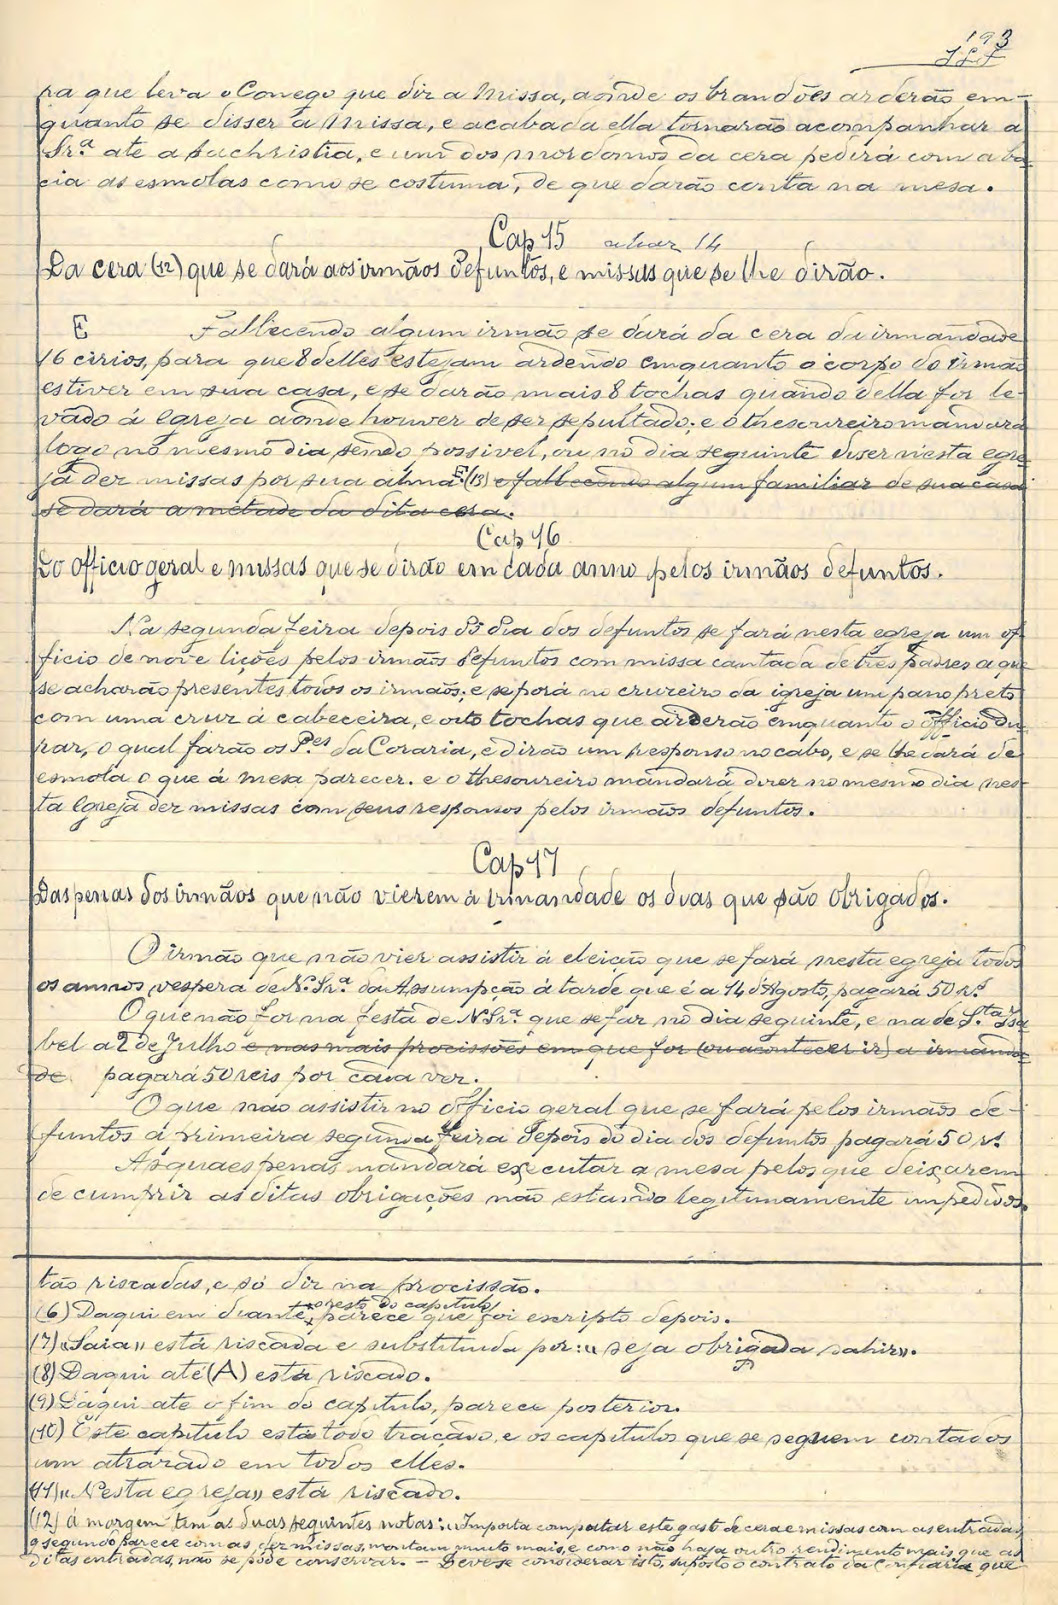 193
ra que leva o Conego que diz a Missa, aonde os brandões arderão em-
quanto se disser a Missa, e acabada ella tornarão acompanhar a
Snr.ª ate a Sachristia, e um dos mordomos da cera pedirá com a ba-
cia as esmolas como se costuma, de que darão conta na mesa.
Cap 15 14
Da cera (12) que se dará aos irmãos defuntos, e missas que se lhe dirão.
E Fallecendo algum irmão se dará da cera da irmandade
16 cirios, para que 8 delles estejam ardendo emquanto o corpo do irmão
estiver em sua casa, e se darão mais 8 tochas quando della for le-
vado á Igreja aonde houver de ser sepultado; e o thesoureiro mandará
logo no mesmo dia sendo possivel, ou no dia seguinte diser nesta egre-
ja dez missas por sua alma. E (13) e fallecendo algum familiar de sua casa
se dará a metade da dita cera.
Cap 16
Do officio geral e missas que se dirão em cada anno pelos irmãos defuntos.
Na segunda feira depois do dia dos defuntos se fará nesta egreja um of-
ficio de nove lições pelos irmãos defuntos com missa cantada de tres padres a que
se acharão presentes todos os irmãos; e se porá no cruzeiro da igreja um pano preto
com uma cruz á cabeceira, e oito tochas que arderão emquanto o officio du-
rar, o qual farão os P.es da Coraria, e dirão um responso no cabo, e se lhe dará de
esmola o que á mesa parecer. e o thesoureiro mandará dizer no mesmo dia nes-
ta Igreja dez missas com seus responsos pelos irmãos defuntos.
Cap 17
Das penas dos irmãos que não vierem á irmandade os dias que são obrigados.
O irmão que não vier assistir á eleição que se fará nesta egreja todos
os annos, vespera de N.ª Snr.ª da Assumpção á tarde que é a 14 d'Agosto, pagará 50 rs.
O que não for na festa de N. Snr.ª que se faz no dia seguinte, e na de S.ta Isa-
bel a 2 de Julho e nas mais procissões em que for (ou acontecer ir) a irmanda-
de pagará 50 reis por cada vez.
O que não assistir no officio geral que se fará pelos irmãos de-
funtos á primeira segunda feira depois do dia dos defuntos pagará 50 rs.
As quaes penas mandará executar a mesa pelos que deixarem
de cumprir as ditas obrigações não estando legitimamente impedidos.
tão riscadas, e só diz na procissão.
o resto do capitulo
(6) Daqui em diante, parece que foi escripto depois.
(7) «Saia» está riscada e substituida por: «seja obrigada sahir».
(8) Daqui até (A) está riscado.
(9) Daqui ate o fim do capitulo, parece posterior.
(10) Este capitulo está todo traçado, e os capitulos que se seguem contados
um atrazado em todos elles.
(11) «Nesta egreja» está riscado.
(12) Á margem tem as duas seguintes notas: «Importa computar este gasto de cera e missas com as entradas,
q segundo parece com as dez missas, montam muito mais, e como não haja outro rendimento mais que as
ditas entradas, não se póde conservar. — Deve se considerar isto, suposto o contrato da Confraria que